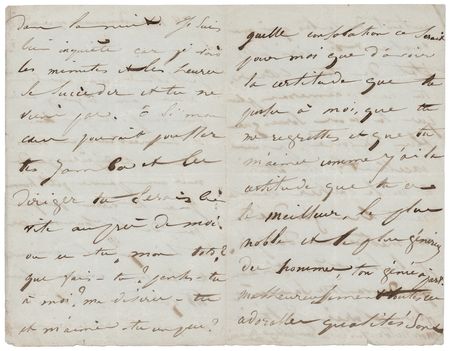 dans la nuit. Je suis
bien inquiète car je vois
les minutes et les heures
se succéder et tu ne
viens pas. ô si mon
cœur pouvait pousser
tes jambes et les
diriger tu serais bien
vite auprès de moi.
où es-tu, mon toto?
que fais-tu? penses-tu
à moi? me désires-tu
et m'aimes-tu un peu?
quelle consolation ce serait
pour moi que d'avoir
la certitude que tu
penses à moi, que tu
me regrettes et que tu
m'aimes comme j'ai la
certitude que tu es
le meilleur, le plus
noble et le plus généreux
des hommes, ton génie à part.
malheureusement toutes ces
adorables qualités dont